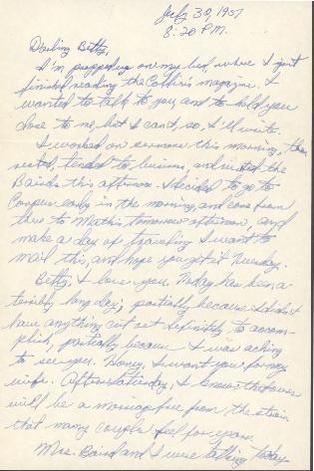 July 30, 1951
8:20 P.M.
Darling Betty,
I'm propped up on my bed, where I just
finished reading the Collier's magazine, &
wanted to talk to you, and to hold you
close to me, but I can't, so, I'll write.
I worked on sermons this morning, then
rested, tended to business, and visited the
Bairds this afternoon. I decided to go to
Corpus early in the morning, and come from
there to Mathis tomorrow afternoon, and
make a day of traveling. I want to
mail this, and hope you get it Tuesday.
Betty, I love you. Today has been a
terribly long day; partially because I didn't
have anything cut out definitely to accom-
plish, partially because I was aching
to see you. Honey, I want you for my
wife. After Saturday, I know that ours
will be a marriage free from the strain
that many couples feel for years.
Mrs. Baird and I were talking today